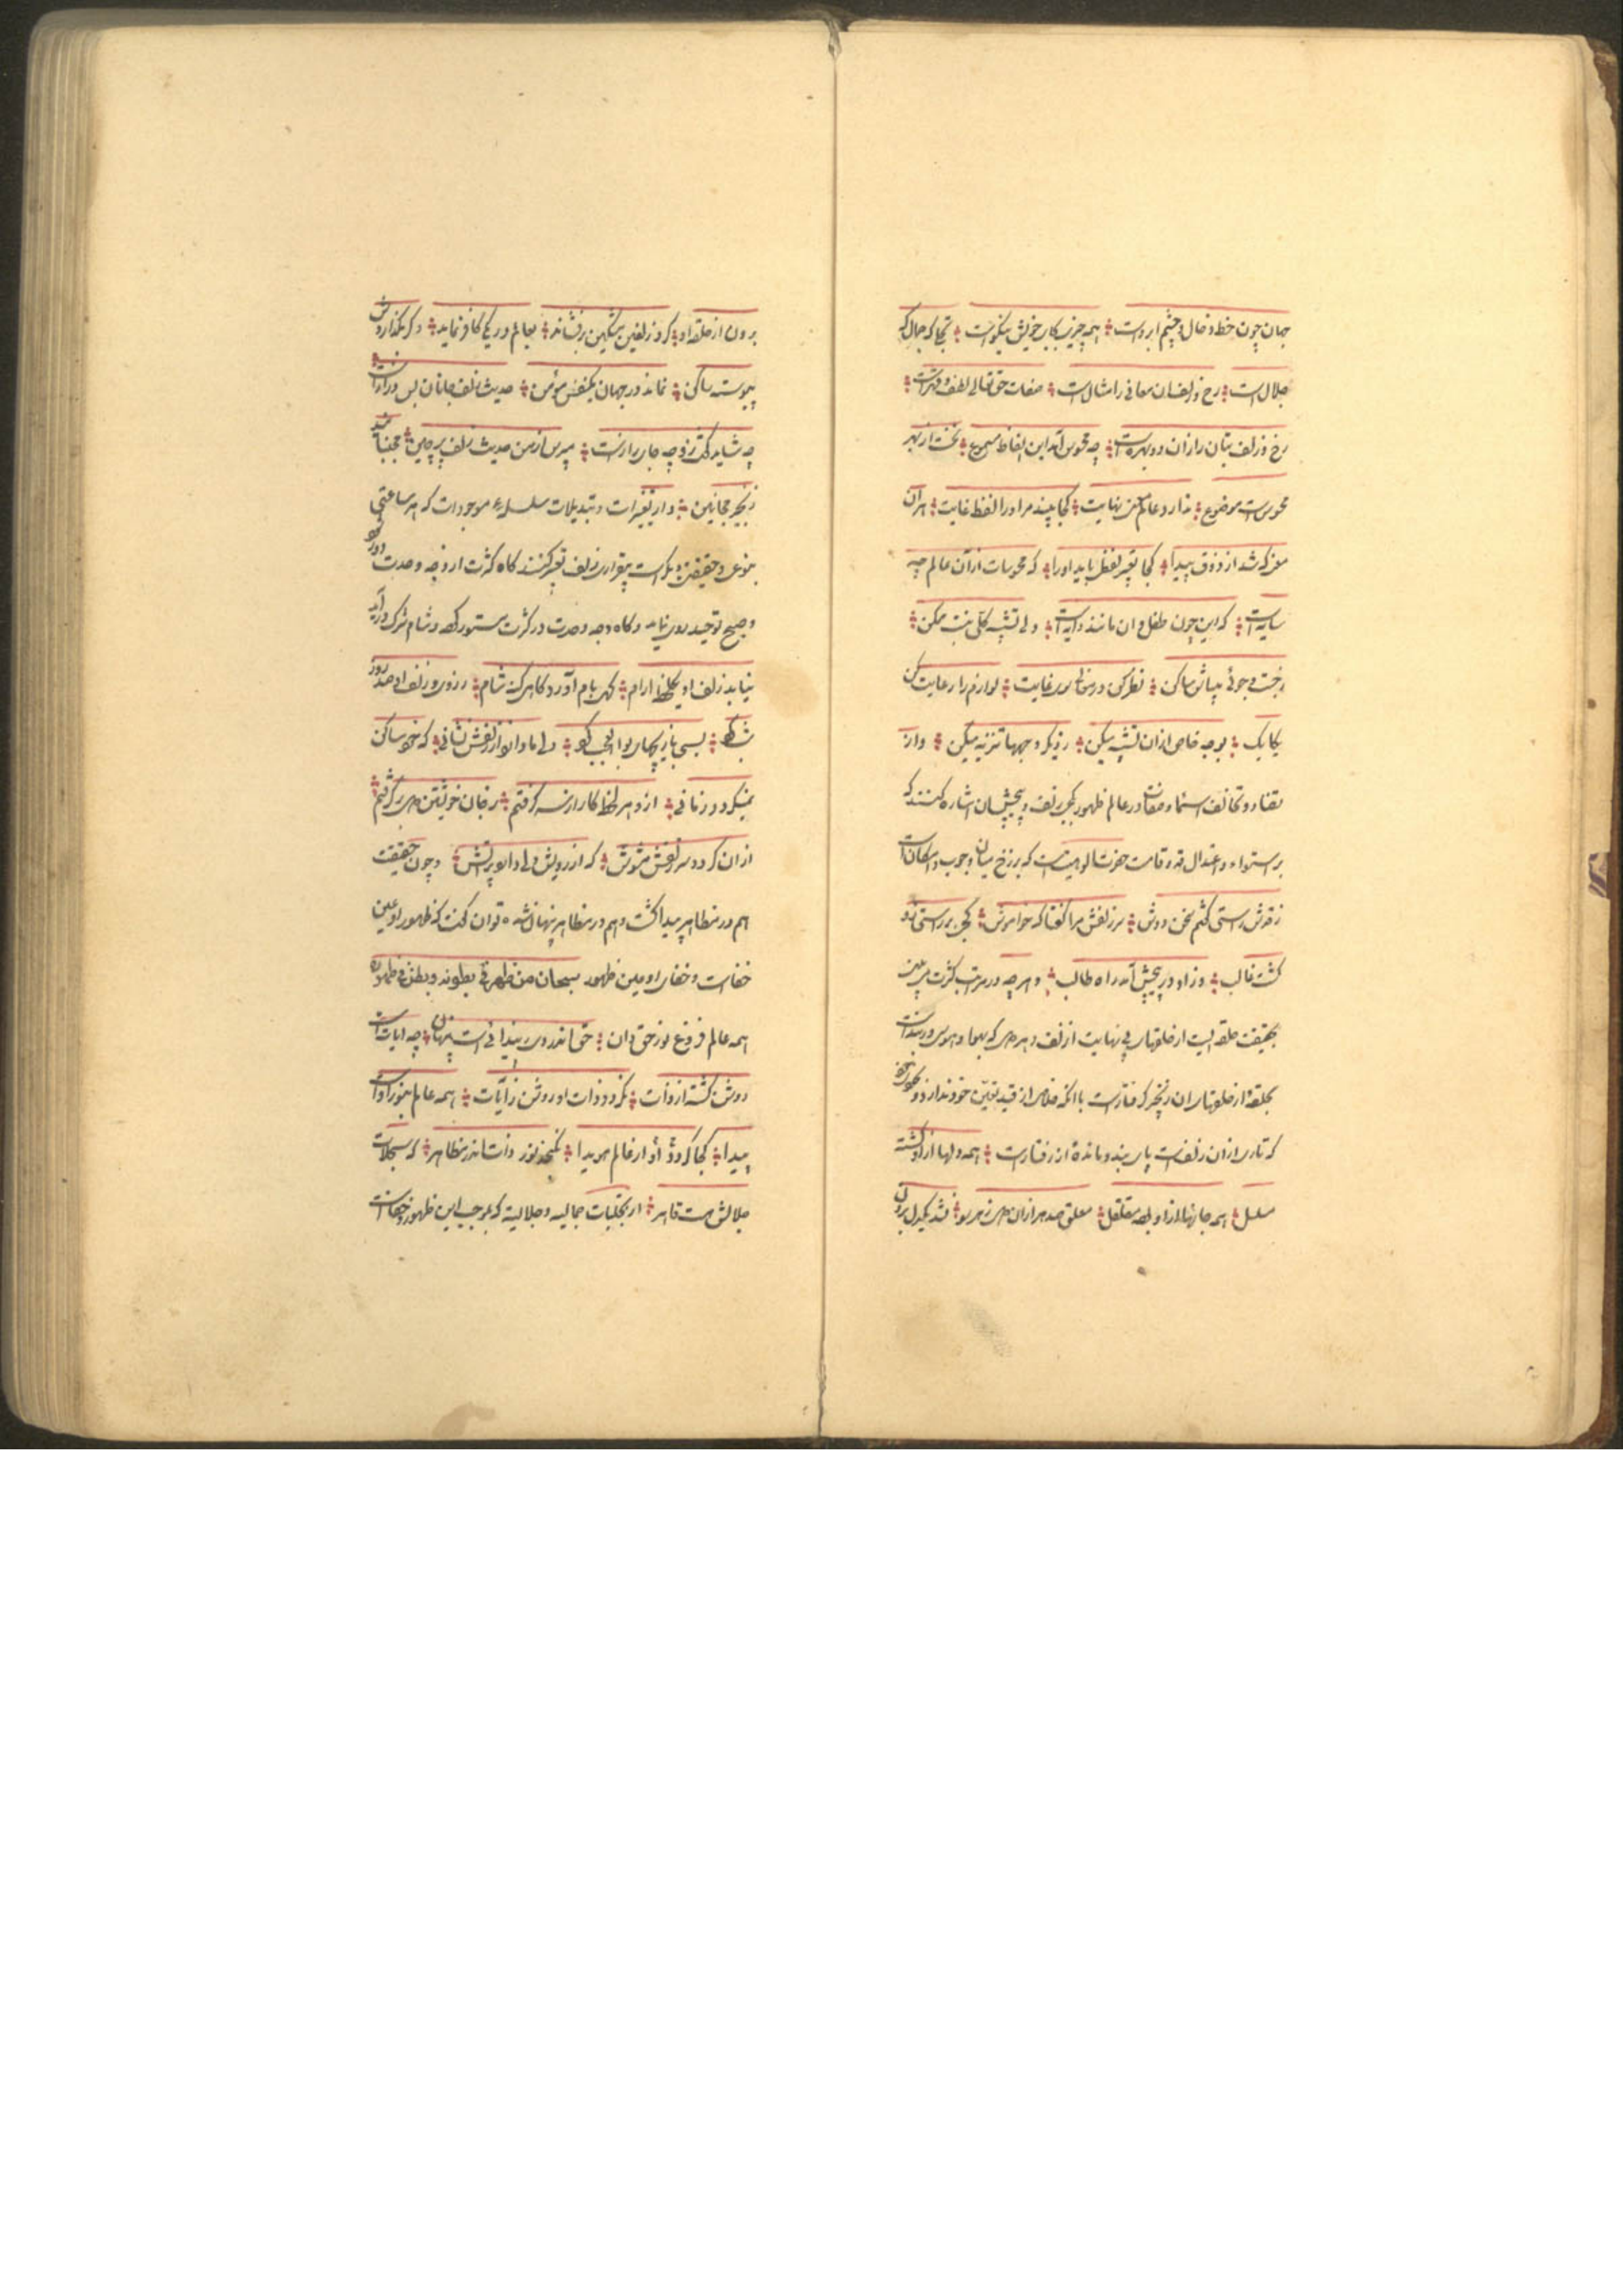 جهان چون خط و خال و چشم ابروست ؛ همه چیزی بجای خویش نیکوست ؛ تجلی که جمال که
جلال است ؛ رخ و زلف ان معانی را مثال است ؛ صفات حق تعالی لطف و قهرست ؛
رخ و زلف بتان را زان دو بهرست ؛ چه محسوس آمد این الفاظ مسموع ؛ نخست از بهر
محسوست موضوع ؛ ندارد عالم معنی نهایت ؛ کجا بیند مر او را لفظ غایت ؛ هر ان
معنی که شد از ذوق پیدا ؛ کجا تعبیر لفظی یابد او را ؛ که محسوسات از آن عالم چه
سایه است ؛ که این چون طفل و ان مانند دایه است ؛ ولی تشبیه کلی نیست ممکن ؛
ز جست و جوئی میباش ساکن ؛ نظر کن در معانی سوی غایت ؛ لوازم را رعایت کن
یکایک ؛ بوجه خاص ازان تشبیه میکن ؛ ز دیگر وجهها تنزیه میکن ؛ و از
تضاد و تخالف اسماء و صفات در عالم ظهور بکجی زلف و پیچش ان اشاره کنند که
بر استواء و اعتدال قد و قامت حضرت الوهیت است که برزخ میان وجوب و امکانست
ز قدش راستی گفتم سخن دوش ؛ سر زلفش مرا گفتا که خواموش ؛ کجی بر راستی زو
گشت غالب ؛ وزاو در پیچش آمد راه طالب ؛ و هر چه در مراتب کثرت
بحقیقت حلقه ایست از حلقهای بی نهایت از زلف و هر دلی که بهوا و هوس در بندست
بحلقهٔ از حلقهای ان زنجیر گرفتارست با انکه خلاص از قید تعین خود ندارد
که تاری از ان زلفست پای بند و مانده از رفتارست ؛ همه دلها ازاو گشته
مسلسل ؛ همه جانها ازاو بوده مقلقل ؛ معلق صد هزاران دل ز هر سو ؛ نشد یکدل برون
برون از حلقه او ؛ گر او زلفین مشکین برفشاند ؛ بعالم در یکی کافر نماند ؛ وگر بگذاردش
پیوسته ساکن ؛ نماند در جهان یکنفس مؤمن ؛ حدیث زلف جانان بس درازست
چه شاید گفت ازو چه جای رازست ؛ مپرس از من حدیث زلف پرچین ؛ مجنبانید
زنجیر مجانین ؛ و از تغییرات و تبدیلات سلسلهٔ موجودات که هر ساعتی
بنوعی و حقیقتی دیگرست بیقراری زلف تعبیر کنند گاه کثرت از وجه وحدت دور گردد
و صبح توحید روی نماید و گاه وجه وحدت در کثرت مستور گردد و شام شرک در آید
نیابد زلف او یکلحظه ارام ؛ گهی بام آورد گاهی کند شام ؛ ز روی و زلف او صد روز
شب کرد ؛ بسی بازیچهای بوالعجب کرد ؛ دل ما دارد از زلفش نشانی ؛ که خود ساکن
نمیگردد زمانی ؛ ازو هر لحظه کار از سر گرفتم ؛ ز جان خویشتن دل بر گرفتم ؛
از ان گردد سر زلفش مشوش ؛ که از رویش دلی دارد بر آتش ؛ و چون حقیقت
هم در مظاهر پیدا گشت و هم در مظاهر پنهان شده توان گفت که ظهور او عین
خفاست و خفای او عین ظهور سبحان من ظهر فی بطونه و بطن فی ظهوره
همه عالم فروغ نور حق دان ؛ حق اندر وی ز پیدائی است پنهان ؛ چه ایات است
روشن گشته از ذات ؛ نگردد ذات او روشن ز آیات ؛ همه عالم بنور اوست
پیدا ؛ کجا گردد او از عالم هویدا ؛ نگنجد نور ذات اندر مظاهر ؛ که سبحات
جلالش هست قاهر ؛ از تجلیات جمالیه و جلالیه که موجب این ظهور و خفاست